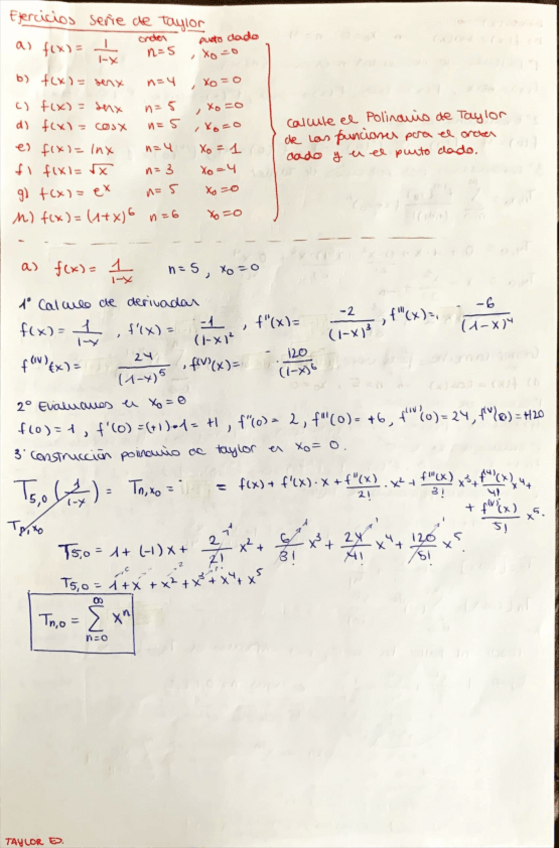 Ejercicios Serie de Taylor
orden punto dado
a) f(x) = 1/(1-x) n=5, x₀=0
b) f(x) = senx n=4, x₀=0
c) f(x) = senx n=5, x₀=0
d) f(x) = cosx n=5, x₀=0
e) f(x) = lnx n=4 x₀=1
f) f(x) = √x n=3 x₀=4
g) f(x) = eˣ n=5 x₀=0
h) f(x) = (1+x)⁶ n=6 x₀=0
Calcule el Polinomio de Taylor
de las funciones para el orden
dado y en el punto dado.
a) f(x) = 1/(1-x) n=5, x₀=0
1º Calculo de derivadas
f(x) = 1/(1-x), f'(x) = -1/(1-x)², f''(x) = -2/(1-x)³, f'''(x) = -6/(1-x)⁴
f⁽ᴵⱽ⁾(x) = 24/(1-x)⁵, f⁽ⱽ⁾(x) = 120/(1-x)⁶
2º Evaluamos en x₀=0
f(0) = 1, f'(0) = (+1)·1 = +1, f''(0) = 2, f'''(0) = +6, f⁽ᴵⱽ⁾(0) = 24, f⁽ⱽ⁾(0) = +120
3º Construcción polinomio de taylor en x₀=0.
T₅,₀(1/(1-x)) = Tn,x₀ = = f(x) + f'(x)·x + f''(x)/2! · x² + f'''(x)/3! x³ + f⁽ᴵⱽ⁾(x)/4! x⁴ +
+ f⁽ⱽ⁾(x)/5! x⁵.
Tn,x₀
T₅,₀ = 1 + (-1)x + 2/2! x² + 6/3! x³ + 24/4! x⁴ + 120/5! x⁵.
T₅,₀ = 1 + x + x² + x³ + x⁴ + x⁵
Tn,₀ = ∞ Σ n=0 xⁿ
TAYLOR ED.